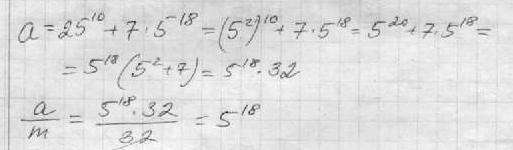 a = 25¹⁰ + 7 · 5⁻¹⁸ = (5²)¹⁰ + 7 · 5¹⁸ = 5²⁰ + 7 · 5¹⁸ =
= 5¹⁸ (5² + 7) = 5¹⁸ · 32
a/m = 5¹⁸ · 32 / 32 = 5¹⁸